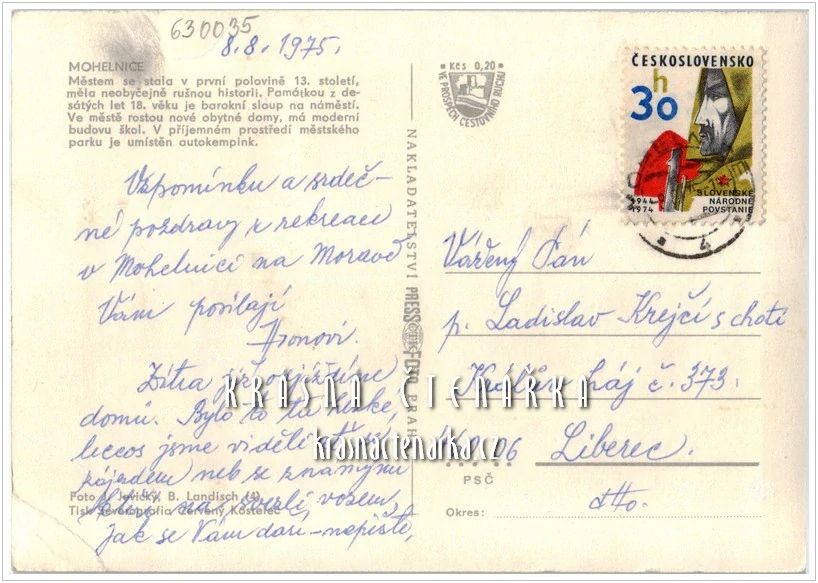 630035
8.8.1975.
MOHELNICE
Městem se stala v první polovině 13. století,
měla neobyčejně rušnou historii. Památkou z de-
sátých let 18. věku je barokní sloup na náměstí.
Ve městě rostou nové obytné domy, má moderní
budovu škol. V příjemném prostředí městského
parku je umístěn autokempink.
Vzpomínku a srdeč-
né pozdravy z rekreace
v Mohelnici na Moravě
Vám posílají
Hronovi.
Zítra již odjíždíme
domů. Bylo to tu hezké,
leccos jsme viděli ať se
zájezdem neb se známými
vozem,
Jak se Vám daří – nepíšete,
Foto J. Jevický, B. Landisch (4)
Tisk Severografia Červený Kostelec
NAKLADATELSTVÍ PRESSFOTO PRAHA
ČTK
Kčs 0,20
VE PROSPĚCH CESTOVNÍHO RUCHU
ČESKOSLOVENSKO
30 h
SLOVENSKÉ
NÁRODNÉ
POVSTANIE
1944
1974
4
Vážený Pán
p. Ladislav Krejčí s chotí
háj č. 373.
06 Liberec.
PSČ
dtto.
Okres:
KRÁSNÁ ČTENÁŘKA
krasnactenarka.cz